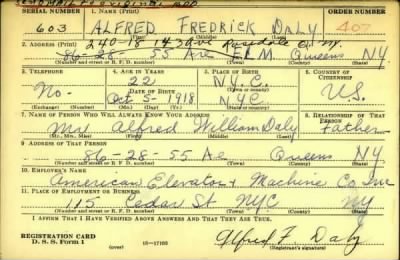 SEND MAIL TO ORIGINAL ADD
SERIAL NUMBER 1. NAME (Print) ORDER NUMBER
603 ALFRED FREDRICK DALY 407
(First) (Middle) (Last)
2. ADDRESS (Print) 240-18 143 Ave Rosedale N.Y.
86-28-55 Ave ELM Queens NY.
(Number and street or R. F. D. number) (Town) (County) (State)
3. TELEPHONE 4. AGE IN YEARS 5. PLACE OF BIRTH 6. COUNTRY OF CITIZENSHIP
22 N.Y.C.
DATE OF BIRTH
No- Oct 5- 1918 NYC U.S.
(Exchange) (Number) (Mo.) (Day) (Yr.) (State or country)
7. NAME OF PERSON WHO WILL ALWAYS KNOW YOUR ADDRESS 8. RELATIONSHIP OF THAT PERSON
Mr Alfred William Daly Father
(Mr., Mrs., Miss) (First) (Middle) (Last)
9. ADDRESS OF THAT PERSON
86-28-55 Ae Queens NY
(Number and street or R. F. D. number) (Town) (County) (State)
10. EMPLOYER'S NAME
American Elevator & Machine Co. Inc
11. PLACE OF EMPLOYMENT OR BUSINESS
115 Cedar St NYC NY
(Number and street or R. F. D. number) (Town) (County) (State)
I AFFIRM THAT I HAVE VERIFIED ABOVE ANSWERS AND THAT THEY ARE TRUE.
REGISTRATION CARD
D. S. S. Form 1 (over) 16-17105 Alfred F. Daly
(Registrant's signature)